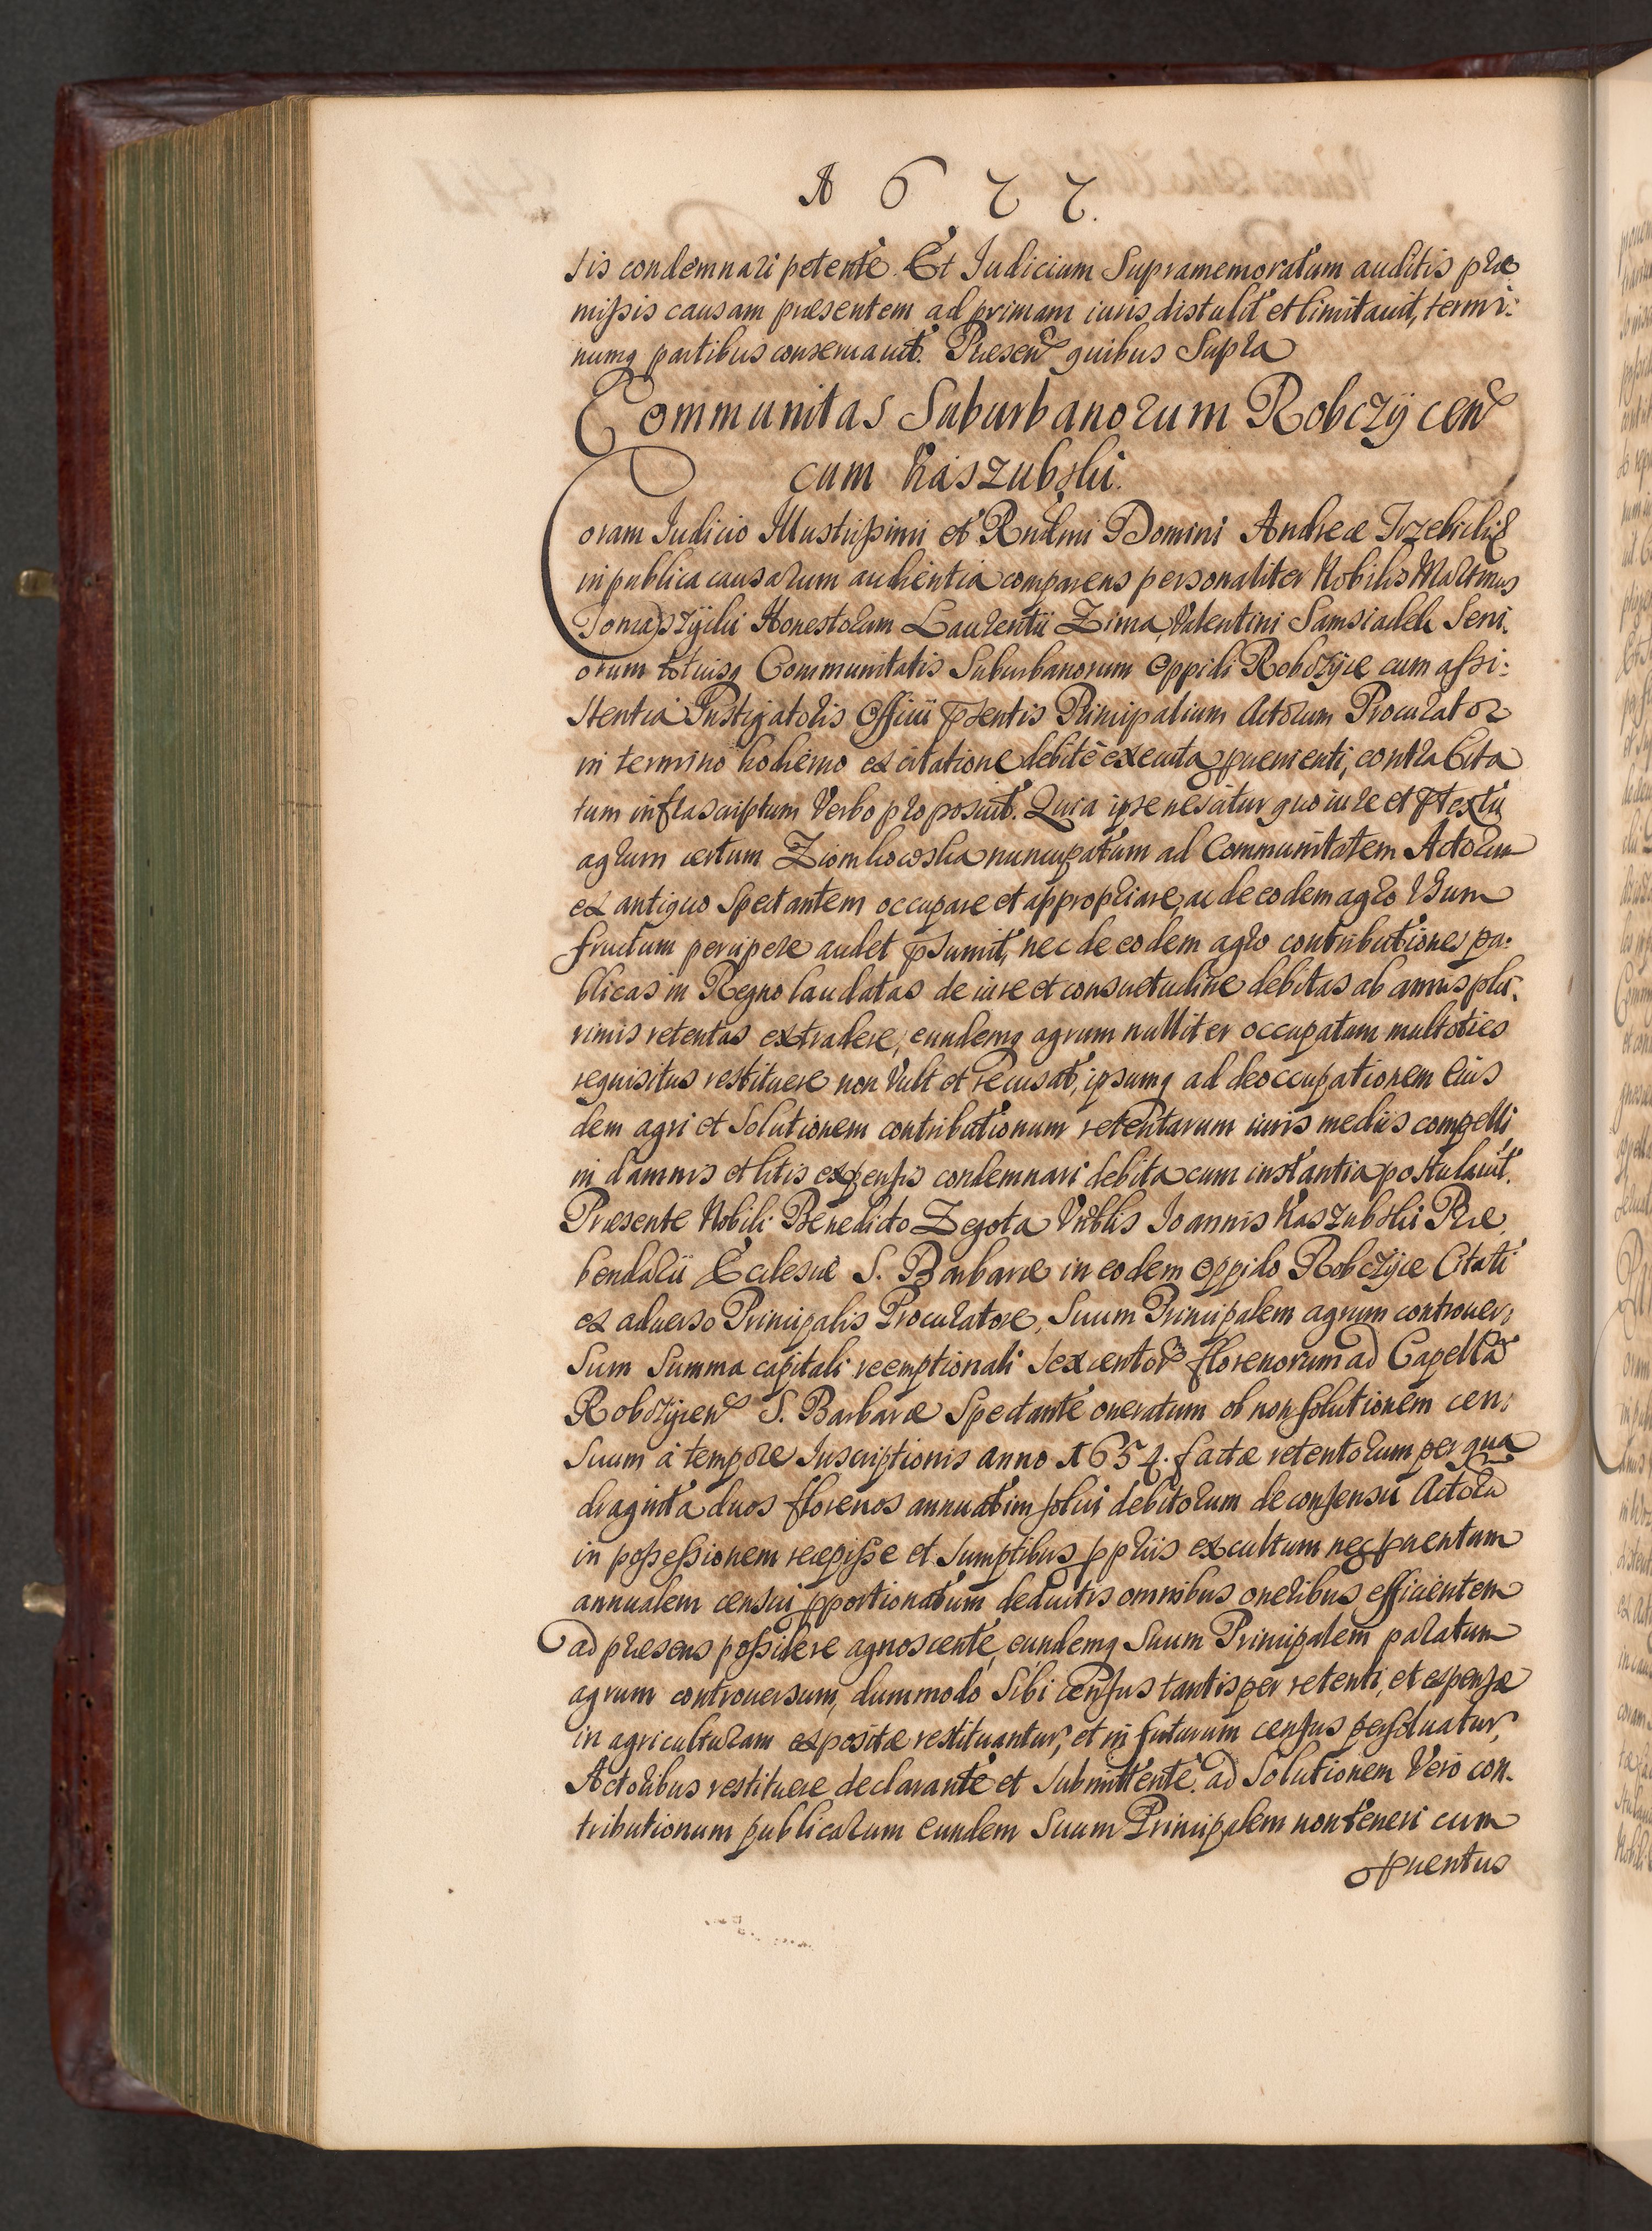 1677.
tis condemnari petente. Et Iudicium Supramemoratum auditis præ
missis causam præsentem ad primam iuris distulit et limitauit, termi:
numq partibus conseruauit. Præsen quibus Supra
Communitas Suburbanorum Robczÿcen
cum Kaszubski.
Coram Iudicio Illustrissimi et Rndmi Domini Andreæ Trzebicki
in publica causarum audientia comparens personaliter Nobilis Martinus
Tomaszÿcki Honestorum Laurentii Zima, Valentini Samsiadek Seni:
orum totiusq Communitatis Suburbanorum Oppidi Robczÿce cum assi:
stentia Instigatoris Officii pñtis Principalium Actorum Procurator
in termino hodierno ex citatione debite executa pueniente, contra Cita
tum infrascriptum Verbo proposuit. Quia ipse nescitur quo iure et ptextu
agrum certum Ziomkowska nuncupatum ad Communitatem Actorum
ex antiquo Spectantem occupare et appropriare, ac de eodem agro Vsum
fructum percipere audet psumit, nec de eodem agro contributiones pu:
blicas in Regno laudatas de iure et consuetudine debitas ab annis plu:
rimis retentas extradere, eundemq agrum nulliter occupatum multoties
requisitus restituere non Vult et recusat, ipsumq ad deoccupationem eius
dem agri et Solutionem contributionum retentarum iuris mediis compelli
in damnis et litis expensis condemnari debita cum instantia postulauit.
Præsente Nobili Benedicto Zegota Vnblis Ioannis Kaszubski Præ
bendarii Ecclesiæ S. Barbaræ in eodem Oppido Robczÿce Citati
ex aduerso Principalis Procuratore, Suum Principalem agrum controuer:
sum Summa capitali reemptionali sexcentor florenorum ad Capellã
Robczÿcen S. Barbaræ Spectante oneratum ob non solutionem cen:
suum à tempore Inscriptionis anno 1654. factæ retentorum per qua
draginta duos florenos annuatim solui debitorum de consensu Actorũ
in possessionem recepisse et sumptibus ppriis excultum nec puentum
annualem censui pportionatum deductis omnibus oneribus efficientem
ad præsens possidere agnoscente, eundemq Suum Principalem paratum
agrum controuersum, dummodo Sibi census tantisper retenti, et expensæ
in agriculturam expositæ restituantur, et in futurum census persoluatur,
Actoribus restituere declarante et submittente. ad Solutionem Vero con:
tributionum publicarum eundem Suum Principalem non teneri cum
puentus